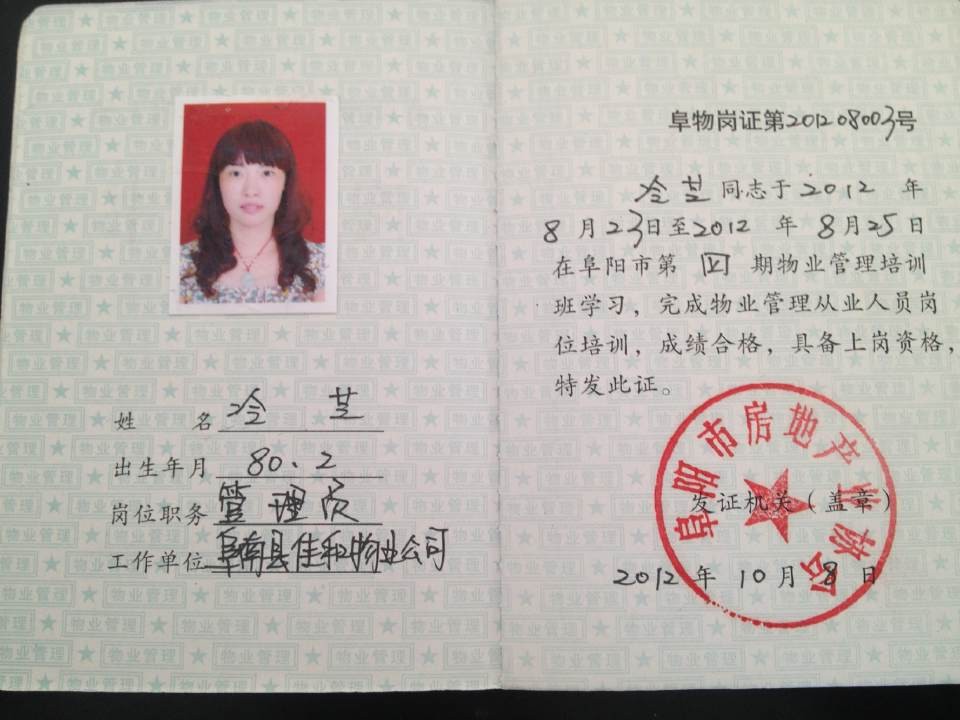 姓 名 冷芝
出生年月 80.2
岗位职务 管理员
工作单位 阜南县佳和物业公司
阜物岗证第201208003号
冷芝同志于2012 年
8 月23日至2012 年 8月25日
在阜阳市第 四 期物业管理培训
班学习，完成物业管理从业人员岗
位培训，成绩合格，具备上岗资格，
特发此证。
阜阳市房地产业协会
发证机关（盖章）
2012 年 10 月 8 日